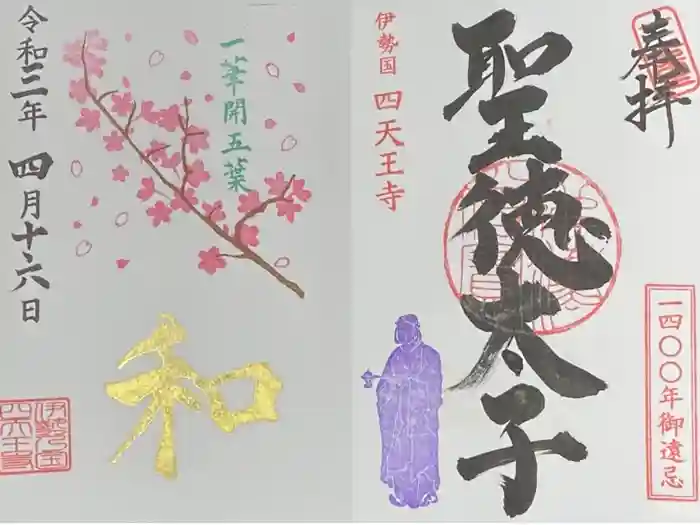 奉拝
聖徳太子
伊勢国 四天王寺
一四〇〇年御遠忌
一華開五葉
和
令和三年 四月十六日
伊勢之国
四天王寺